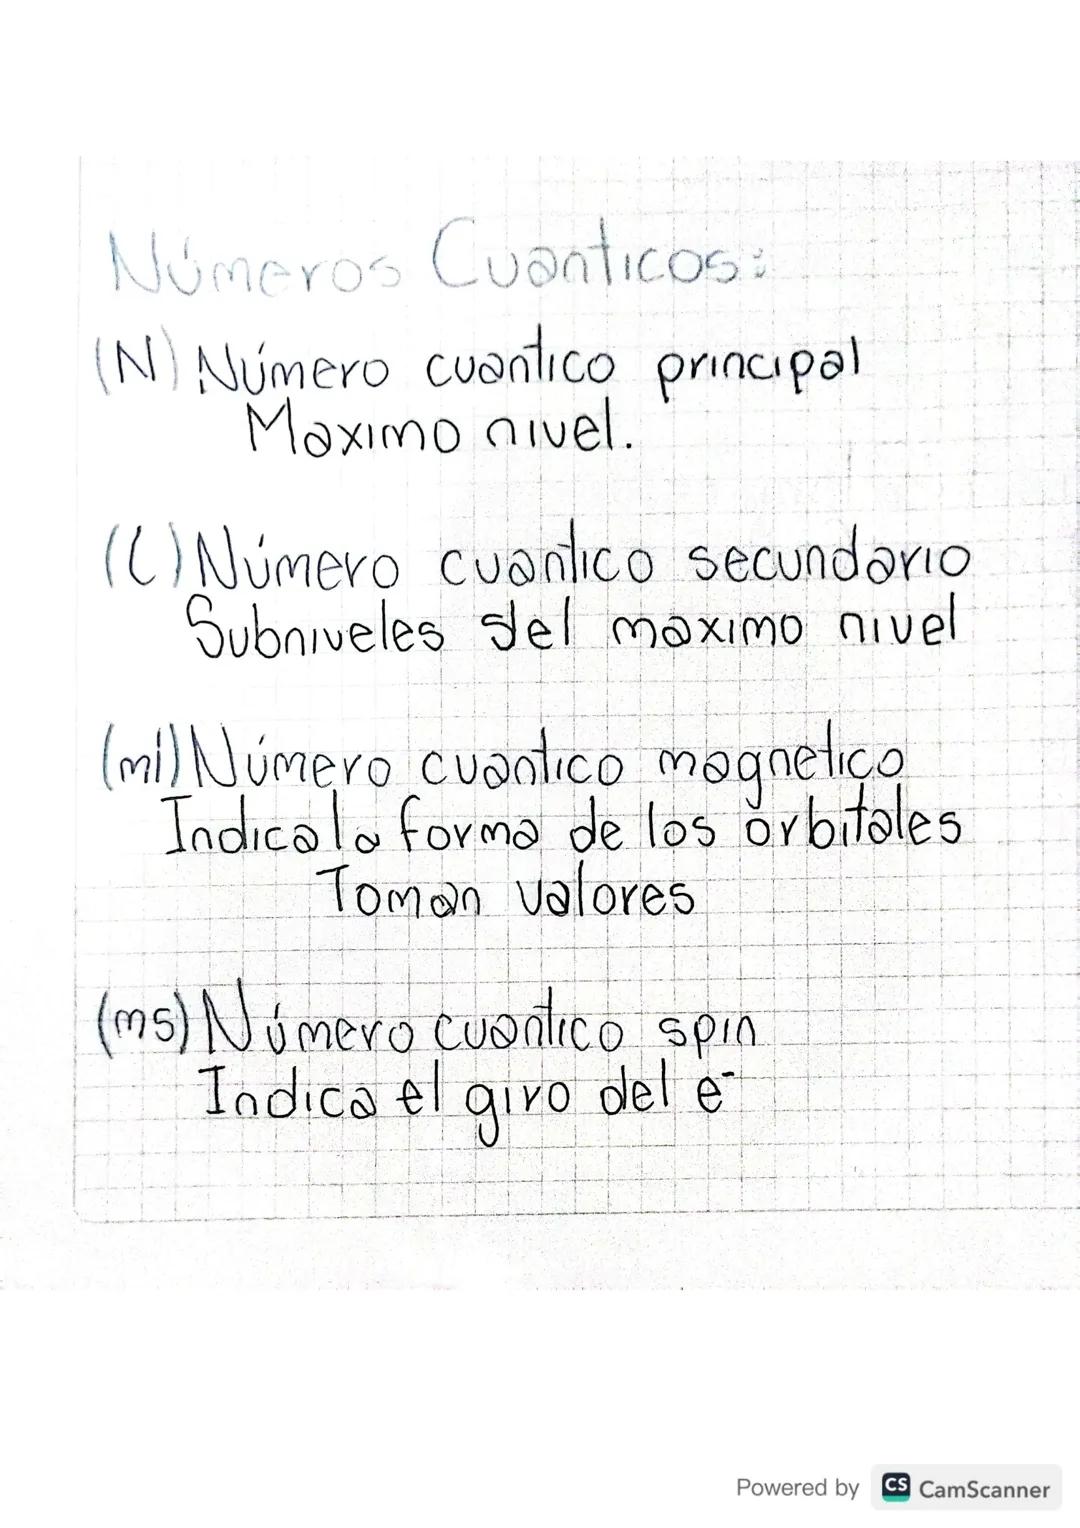 Números Cuanticos:
(N) Número cuantico principal
Maximo nivel.
(l) Número cuantico secundario
Subniveles del maximo nivel
(ml) Número cuantico magnetico
Indica la forma de los orbitales
Toman valores
(ms) Número cuantico spin
Indica el giro del e⁻
Powered by CS CamScanner